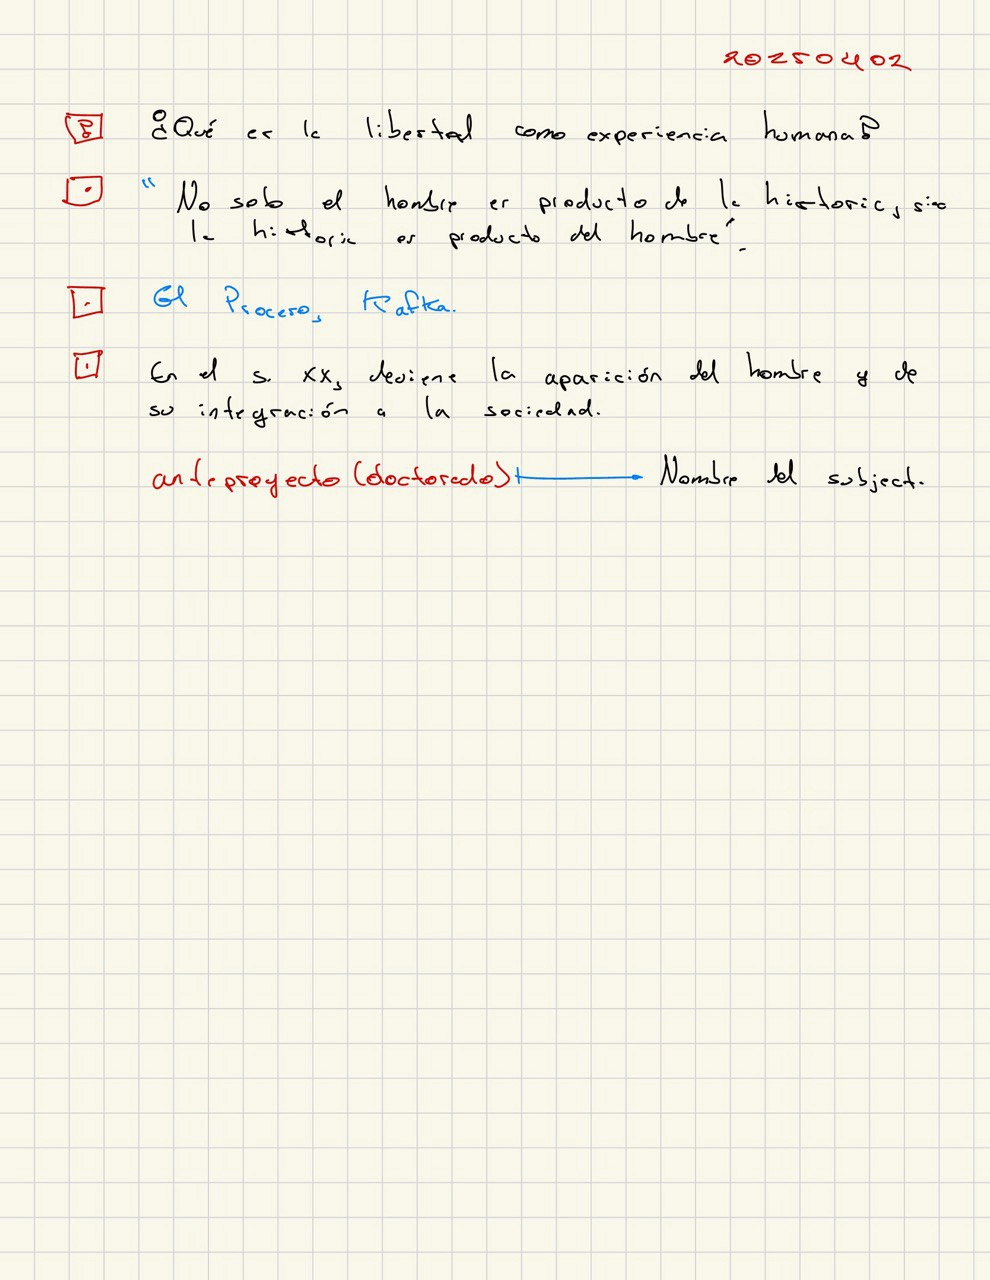 20250402
¿Qué es la libertad como experiencia humana?
"No solo el hombre es producto de la historia, sino
la historia es producto del hombre".
El Proceso, Kafka.
En el s. XX, deviene la aparición del hombre y de
su integración a la sociedad.
anteproyecto (doctorado) Nombre del subject.